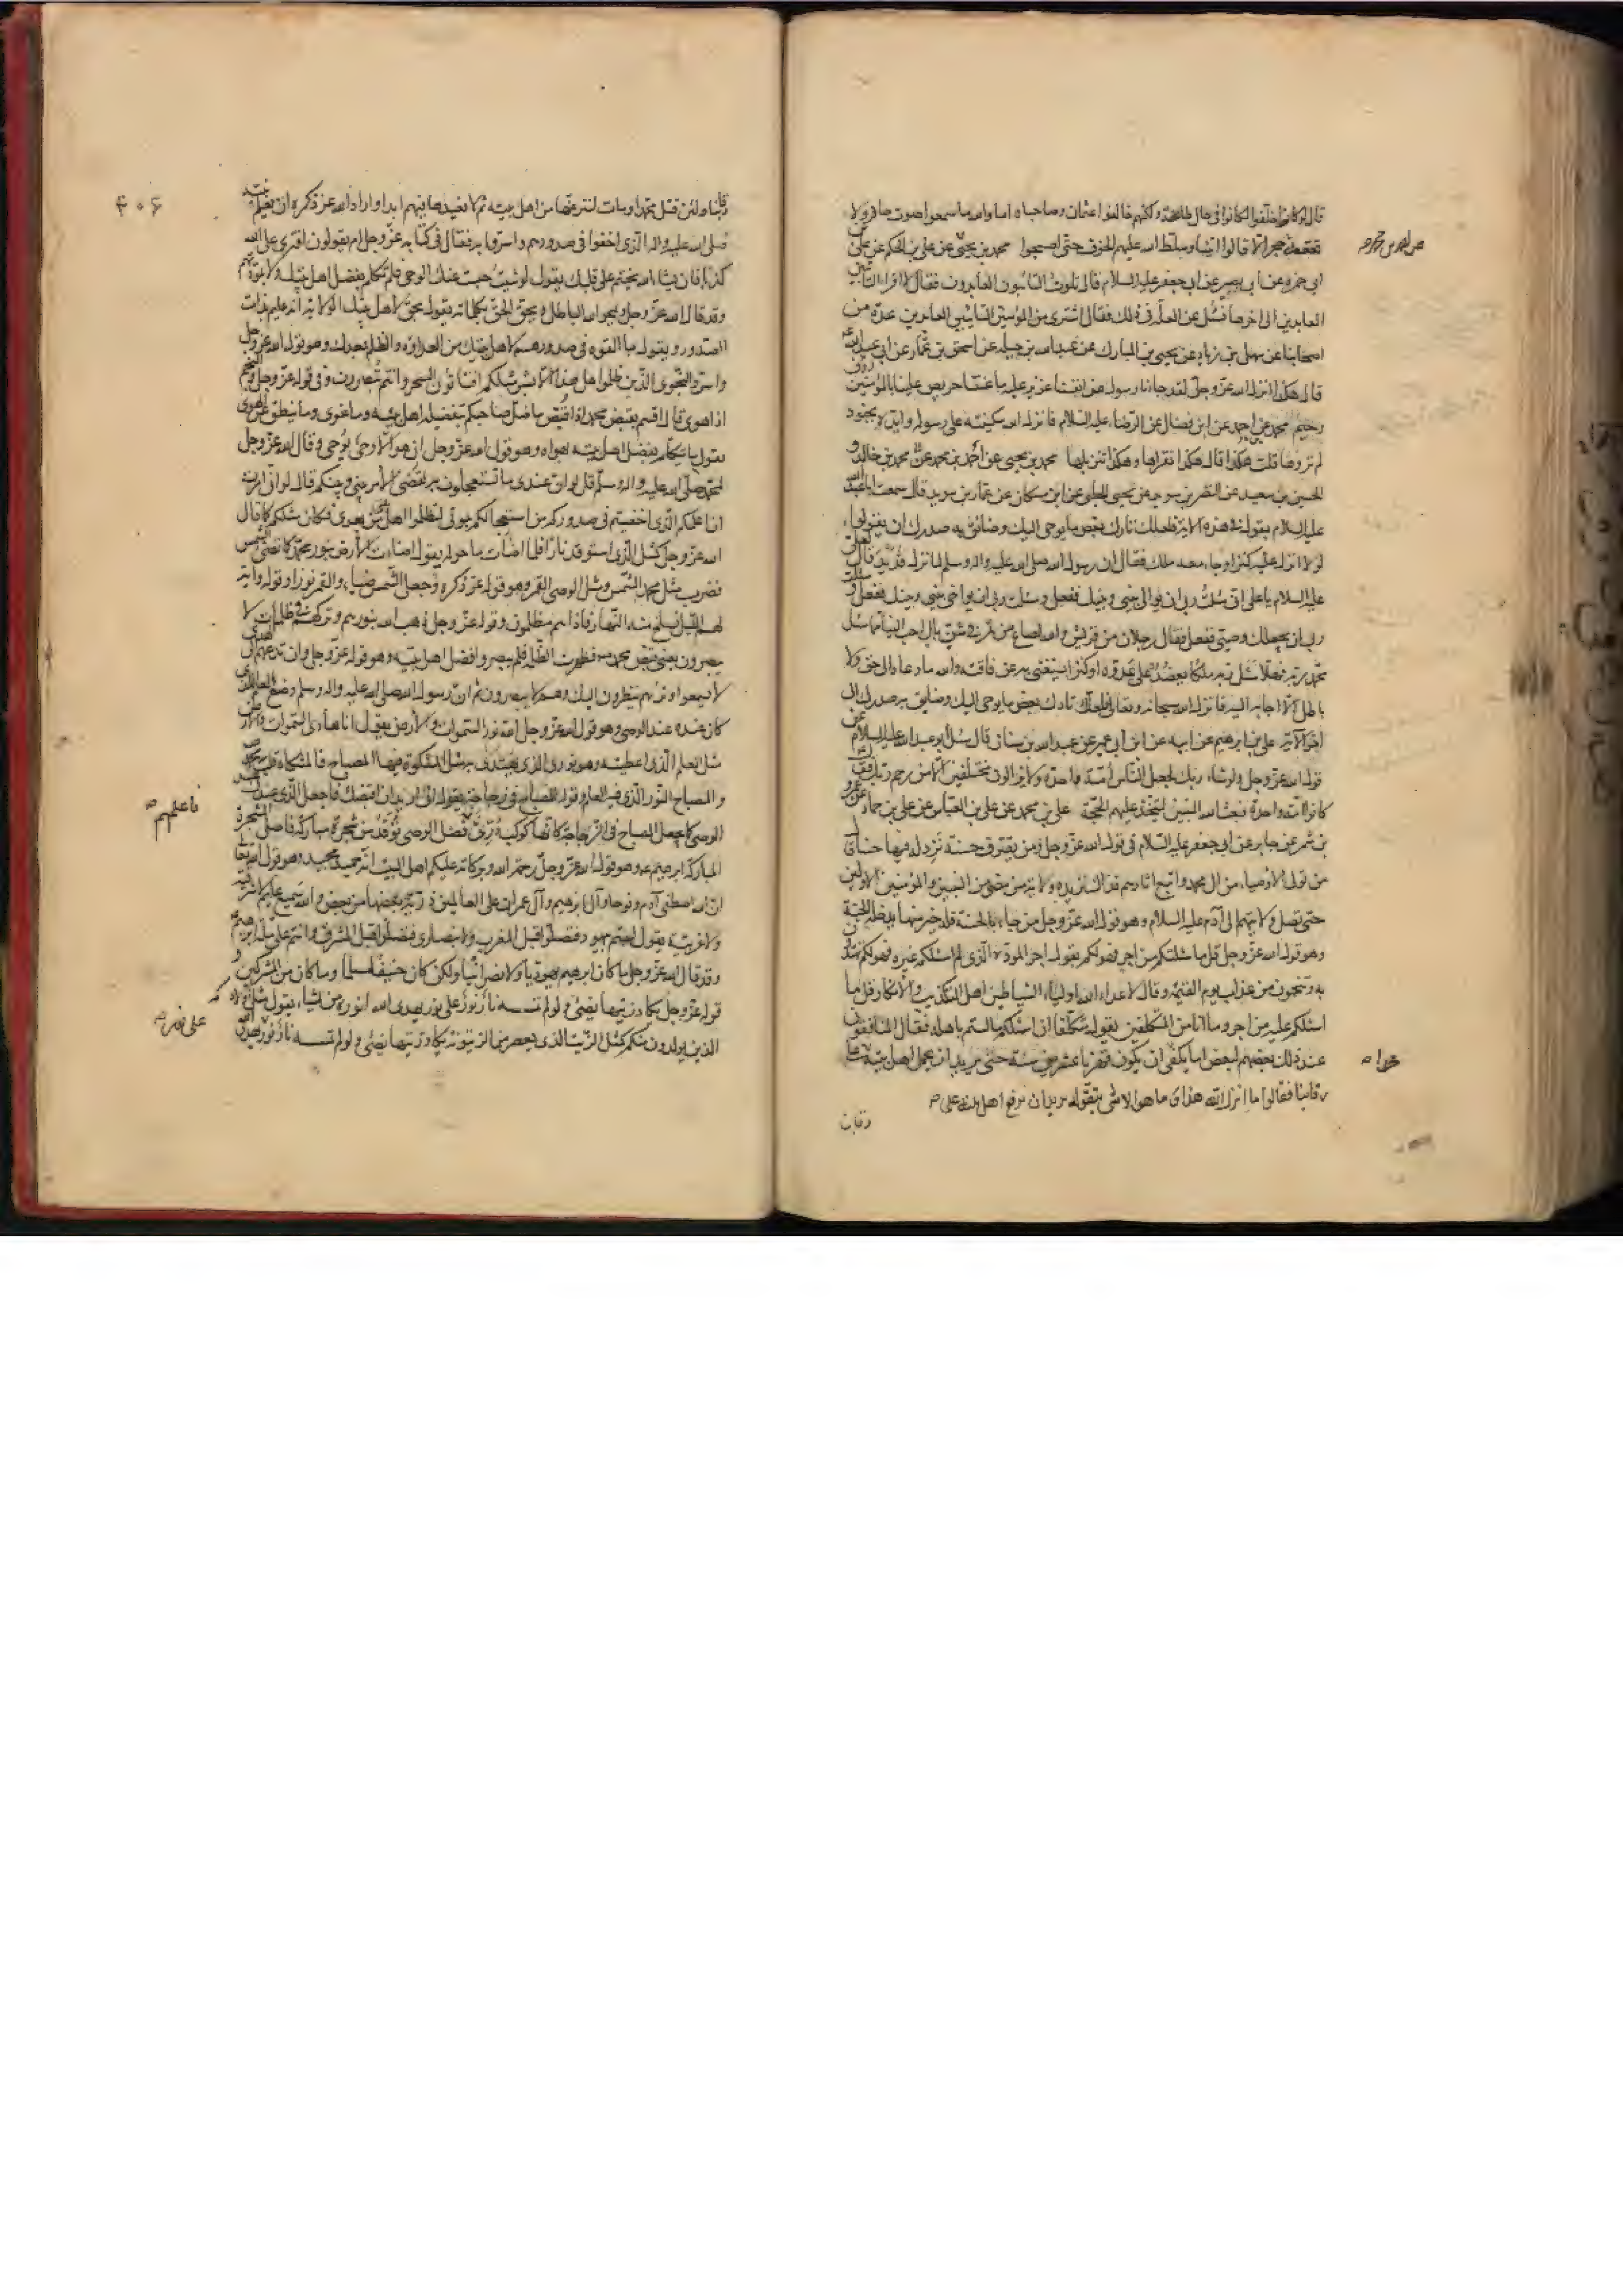 قال لو كانوا خلفوا لكانوا فى حال طاعة ولكنهم خالفوا عثمان وصاحباه اما والله ما سمعوا صوت حافر ولا
قعقعة حجر الا قالوا اتينا وسلط الله عليهم الخوف حتى اصبحوا محمد بن يحيى عن على بن الحكم عن على بن
ابى حمزه عن ابى بصير عن ابى جعفر عليه السلام قال تلوت التائبون العابدون فقال لا اقرا التائبين
العابدين الى اخرها فسئل عن العلة فى ذلك فقال اشترى من المؤمنين التائبين العابدين عدة من
اصحابنا عن سهل بن زياد عن يحيى بن المبارك عن عبدالله بن جبله عن اسحق بن عمار عن ابى عبدالله
قال هكذا انزل الله عز وجل لقد جاءنا رسول من انفسنا عزيز عليه ما عنتنا حريص علينا بالمؤمنين رؤف
رحيم محمد عن احمد عن ابن فضال عن الرضا عليه السلام فانزل الله سكينته على رسوله وايده بجنود
لم تروها قلت هكذا قال هكذا نقراها وهكذا تنزيلها محمد بن يحيى عن احمد بن محمد عن محمد بن خالد و
الحسين بن سعيد عن النضر بن سويد عن يحيى الحلبى عن ابن مسكان عن عمار بن سويد قال سمعت ابا عبدالله
عليه السلام يقول فى هذه الاية فلعلك تارك بعض ما يوحى اليك وضائق به صدرك ان يقولوا
لولا انزل عليه كنز او جاء معه ملك فقال ان رسول الله صلى الله عليه واله وسلم لما نزل قديد قال لعلى
عليه السلام يا على انى سئلت ربى ان يوالى بينى وبينك ففعل وسئلت ربى ان يواخى بينى وبينك ففعل وسئلت
ربى ان يجعلك وصيى ففعل فقال رجلان من قريش والله لصاع من تمر فى شن بال احب الينا مما سئل
محمد ربه فهلا سئل ربه ملكا يعضده على عدوه او كنزا يستغنى به عن فاقته والله ما دعاه الى حق ولا
باطل الا اجابه اليه فانزل الله سبحانه وتعالى فلعلك تارك بعض ما يوحى اليك وضائق به صدرك الى
اخر الآية على بن ابراهيم عن ابيه عن ابن ابى عمير عن عبدالله بن سنان قال سئل ابو عبدالله عليه السلام عن
قول الله عز وجل ولو شاء ربك لجعل الناس امة واحدة ولا يزالون مختلفين الا من رحم ربك فقال
كانوا امة واحدة فبعث الله النبيين ليتخذ عليهم الحجة على بن محمد عن على بن العباس عن على بن حماد عن عمرو
بن شمر عن جابر عن ابى جعفر عليه السلام فى قول الله عز وجل ومن يقترف حسنة نزد له فيها حسنا قال
من تولى الاوصياء من ال محمد واتبع اثارهم فذاك نزيده ولاية من مضى من النبيين والمؤمنين الاولين
حتى تصل ولايتهم الى آدم عليه السلام وهو قول الله عز وجل من جاء بالحسنة فله خير منها يدخله الجنة
وهو قول الله عز وجل قل ما سئلتكم من اجر فهو لكم يقول اجر المودة الذى لم اسئلكم غيره فهو لكم تهتدون
به وتنجون من عذاب يوم القيمة وقال لاعداء الله اولياء الشياطين اهل التكذيب والانكار قل ما
اسئلكم عليه من اجر وما انا من المتكلفين يقول متكلفا ان اسئلكم ما لستم باهله فقال المنافقون
عند ذلك بعضهم لبعض اما يكفى ان يكون قهرنا عشرين سنة حتى يريد ان يحمل اهل بيته على
رقابنا فقالوا ما انزل الله هذا وما هو الا شى يتقوله يريد ان يرفع اهل بيته على
رقابنا
محمدا
۴۰۶
رقابنا ولئن قتل محمد او مات لننزعنها من اهل بيته ثم لا نعيدها فيهم ابدا واراد الله عز ذكره ان يعلم نبيه
صلى الله عليه واله الذى اخفوا فى صدورهم واسروا به فقال فى كتابه عز وجل ام يقولون افترى على الله
كذبا فان يشاء الله يختم على قلبك يقول لو شئت حبست عنك الوحى فلم تكلم بفضل اهل بيتك ولا بمودتهم
وقد قال الله عز وجل ويمحو الله الباطل ويحق الحق بكلماته يقول الحق لاهل بيتك الولاية انه عليم بذات
الصدور ويقول بما القوه فى صدورهم لاهل بيتك من العداوة والظلم بعدك وهو قول الله عز وجل
واسروا النجوى الذين ظلموا هل هذا الا بشر مثلكم افتاتون السحر وانتم تبصرون وفى قوله عز وجل والنجم
اذا هوى قال اقسم بقبض محمد اذا قبض ما ضل صاحبكم بتفضيله اهل بيته وما غوى وما ينطق عن الهوى
يقول ما يتكلم بفضل اهل بيته بهواه وهو قول الله عز وجل ان هو الا وحى يوحى وقال الله عز وجل
لمحمد صلى الله عليه واله وسلم قل لو ان عندى ما تستعجلون به لقضى الامر بينى وبينكم قال لو انى امرت
ان اعلمكم الذى اخفيتم فى صدوركم من استعجالكم بموتى لتظلموا اهل بيتى من بعدى فكان مثلكم كما قال
الله عز وجل كمثل الذى استوقد نارا فلما اضاءت ما حوله يقول اضاءت الارض بنور محمد كما تضىء الشمس
فضرب مثل محمد الشمس ومثل الوصى القمر وهو قول عز ذكره وجعل الشمس ضياء والقمر نورا وقوله واية
لهم الليل نسلخ منه النهار فاذا هم مظلمون وقوله عز وجل ذهب الله بنورهم وتركهم فى ظلمات لا
يبصرون يعنى قبض محمد وظهرت الظلمة فلم يبصروا فضل اهل بيته وهو قوله عز وجل وان تدعهم الى الهدى
لا يسمعوا وتريهم ينظرون اليك وهم لا يبصرون ثم ان رسول الله صلى الله عليه واله وسلم وضع العلم الذى
كان عنده عند الوصى وهو قول الله عز وجل الله نور السموات والارض يقول انا هادى السموات والارض
مثل العلم الذى اعطيته وهو نورى الذى يهتدى به مثل المشكوة فيها المصباح فالمشكاة قلب محمد
والمصباح النور الذى فيه العلم وقوله المصباح فى زجاجة يقول انى اريد ان اقبضك فاجعل الذى عندك عند
الوصى كما يجعل المصباح فى الزجاجة كانها كوكب درى فاعلمهم فضل الوصى توقد من شجرة مباركة فاصل الشجرة
المباركة ابرهيم وهو قول الله عز وجل رحمة الله وبركاته عليكم اهل البيت انه حميد مجيد وهو قول الله عز وجل
ان الله اصطفى آدم ونوحا وآل ابرهيم وآل عمران على العالمين ذرية بعضها من بعض والله سميع عليم لا شرقية
ولا غربية يقول لستم بيهود فتصلوا قبل المغرب ولا نصارى فتصلوا قبل المشرق وانتم على ملة ابرهيم
وقد قال الله عز وجل ما كان ابرهيم يهوديا ولا نصرانيا ولكن كان حنيفا مسلما وما كان من المشركين و
قوله عز وجل يكاد زيتها يضىء ولو لم تمسسه نار نور على نور يهدى الله لنوره من يشاء يقول مثل اولادكم
الذين يولدون منكم كمثل الزيت الذى يعصر من الزيتونة يكاد زيتها يضىء ولو لم تمسسه نار نور على نور
فاعلمهم
على نور